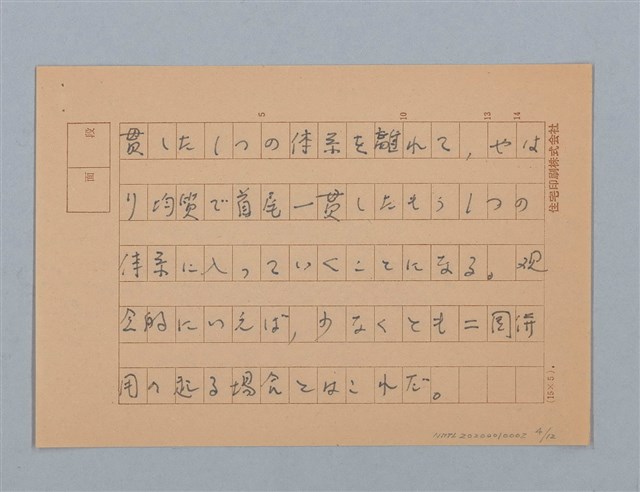 貫した1つの体系を離れて,やは
り均質で首尾一貫したもう1つの
体系に入っていくことになる。观
念的にいえば,少なくとも二国併
用の起る場合とはこれだ。
段
面
5
10
13
14
住宅印刷株式会社
(15×5).
NMTL20000010002 4/12